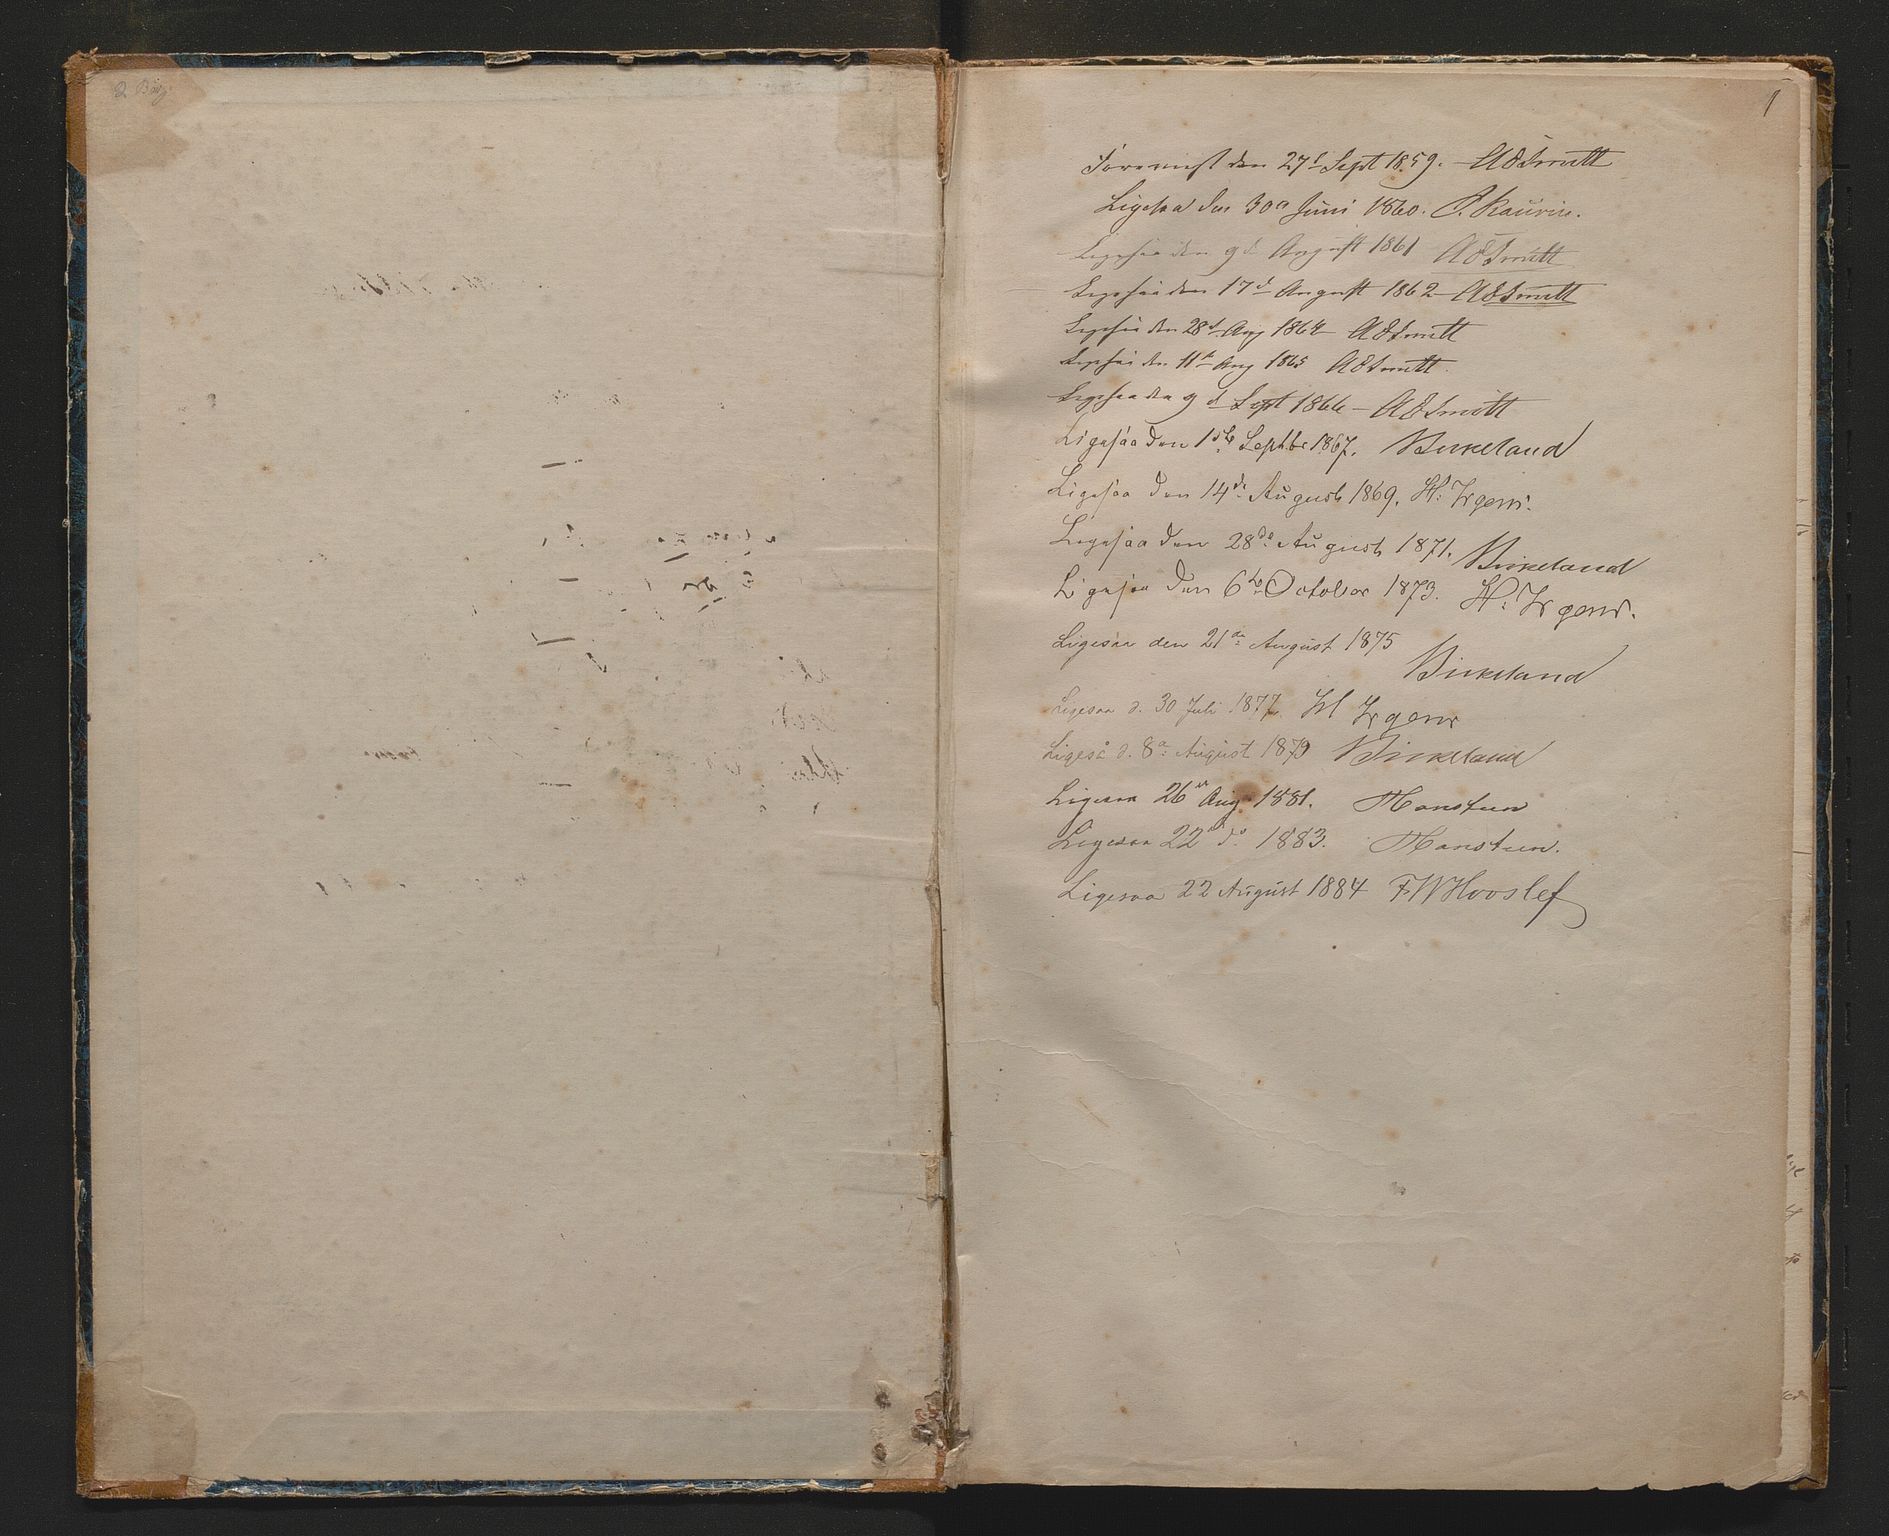 1
Forevist den 27d Sept 1859. AESmitt
Ligesaa den 30te Juni 1860. P. Kaurin.
Ligesaa den 9de August 1861 AESmitt
Ligesaa den 17d August 1862 AESmitt
Ligesaa den 28d Aug 1864 AESmitt
Ligesaa den 11te Aug 1865 AESmitt.
Ligesaa den 9d Sept 1866 AESmitt
Ligesaa den 1ste Septbr 1867. Birkeland
Ligesaa den 14de August 1869. H: Irgens.
Ligesaa den 28de August 1871. Birkeland
Ligesaa den 6te October 1873. H: Irgens.
Ligesaa den 21de August 1875
Birkeland
Ligesaa d. 30 Juli 1877. H Irgens
Ligeså d. 8de August 1879 Birkeland
Ligesaa 26de Aug 1881.
Ligesaa 22de do 1883.
Ligesaa 22 August 1884 F.W.Hvoslef